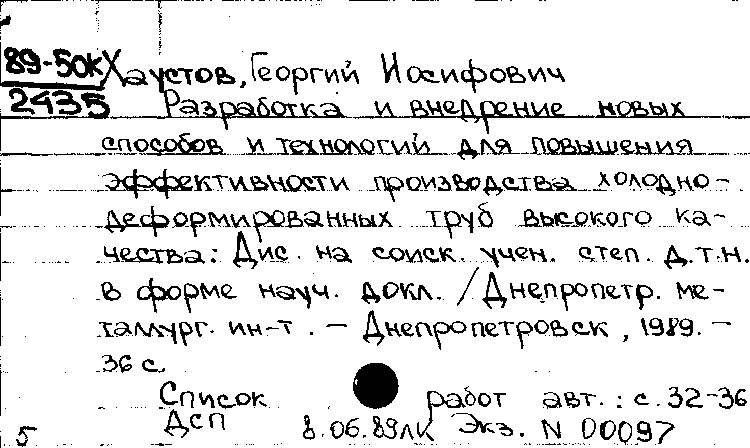 89-50к Хаустов, Георгий Иосифович
2435 Разработка и внедрение новых
способов и технологий для повышения
эффективности производства холодно-
деформированных труб высокого ка-
чества: Дис. на соиск. учен. степ. д.т.н.
в форме науч. докл. / Днепропетр. ме-
таллург. ин-т. – Днепропетровск, 1989. –
36 с.
Список работ авт.: с. 32-36
ДСП 8.06.89лк Экз. N 00097
5